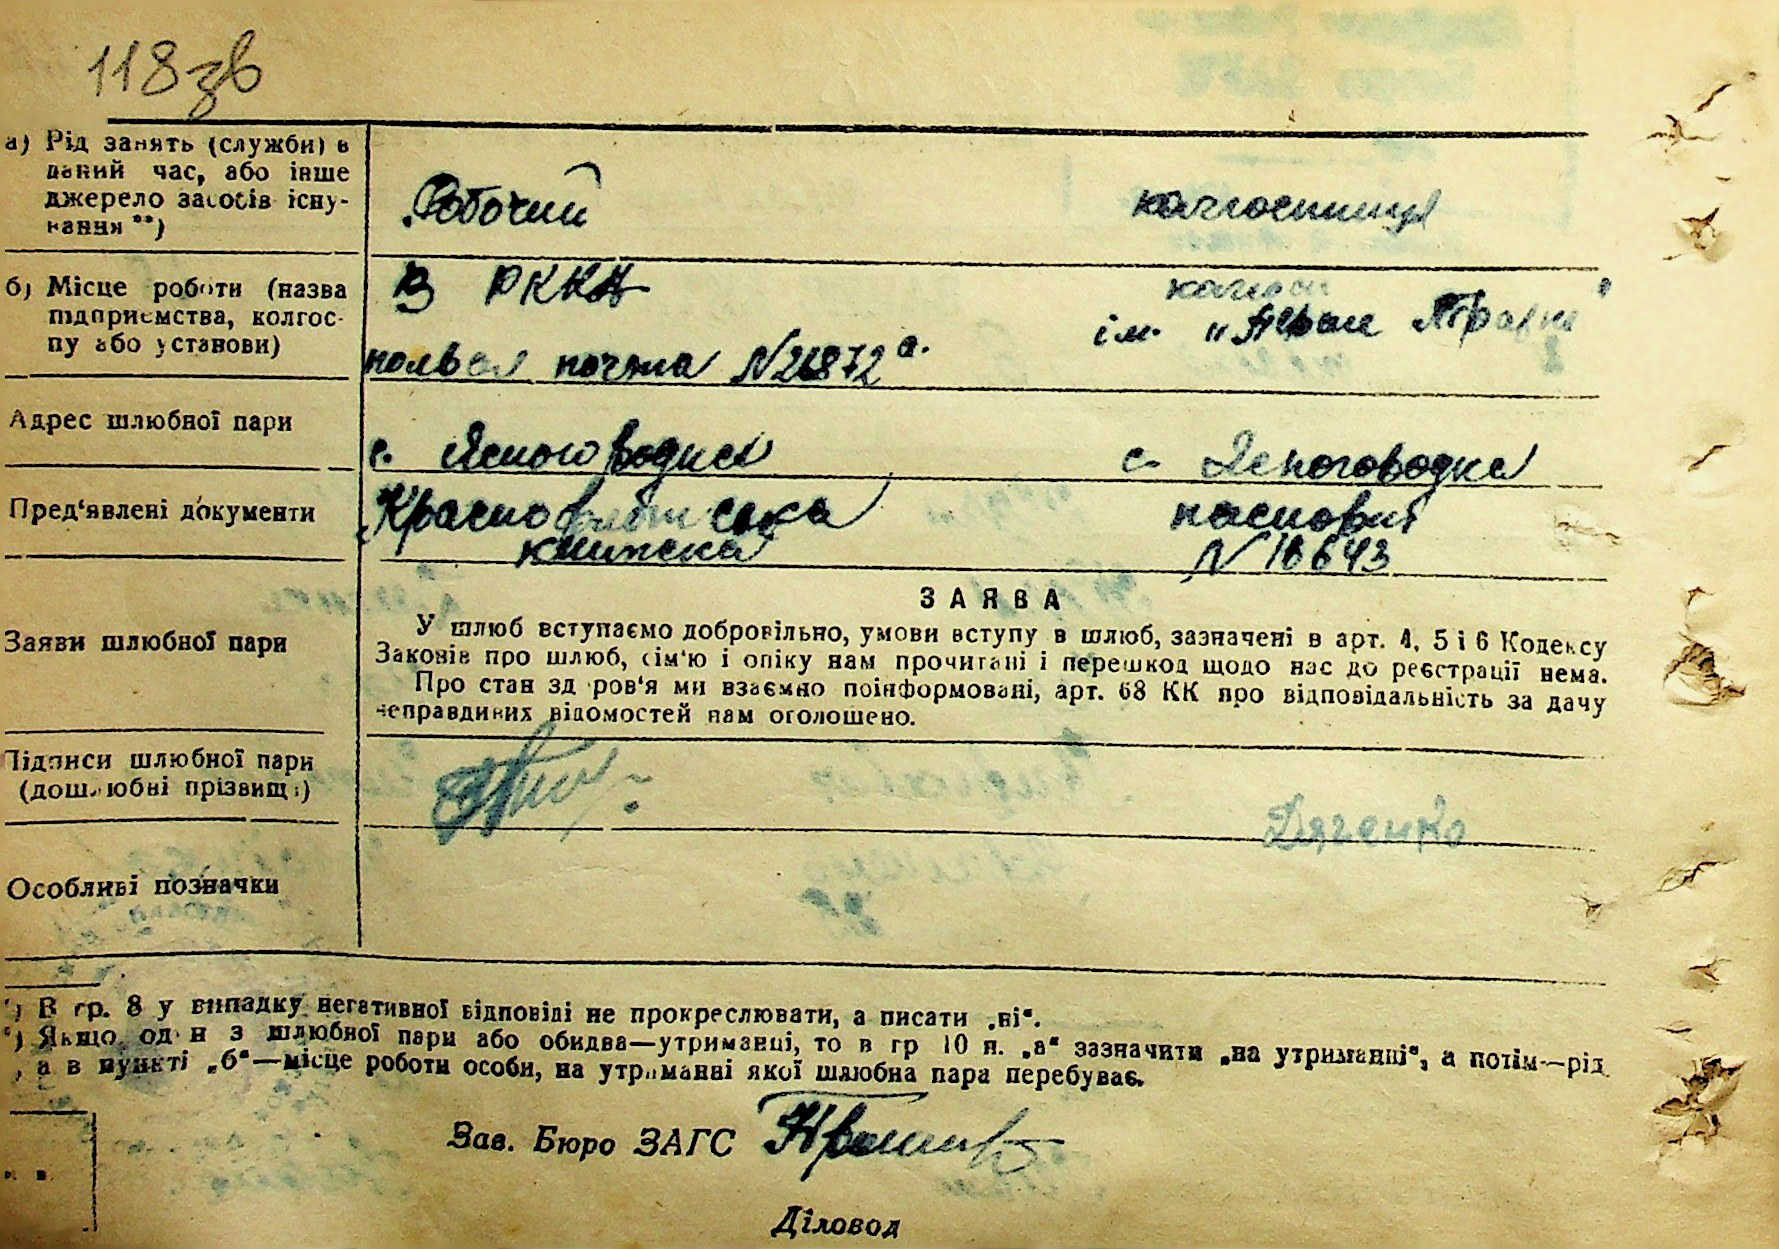 118зв
а) Рід занять (служби) в
даний час, або інше
джерело засобів існу-
вання **)
Робочий
колгоспниця
б) Місце роботи (назва
підприємства, колгос-
пу або установи)
В РККА
польвая почта N 26872 а.
колгосп
ім. „Перше Травня"
Адрес шлюбної пари
с. Ясногородка
с. Ясногородка
Пред'явлені документи
Красно
ська
книжска
паспорт
N 18643
Заяви шлюбної пари
ЗАЯВА
У шлюб вступаємо добровільно, умови вступу в шлюб, зазначені в арт. 4, 5 і 6 Кодексу
Законів про шлюб, сім'ю і опіку нам прочитані і перешкод щодо нас до реєстрації нема.
Про стан здоров'я ми взаємно поінформовані, арт. 68 КК про відповідальність за дачу
неправдивих відомостей нам оголошено.
Підписи шлюбної пари
(дошлюбні прізвища)
Дяченко
Особливі позначки
*) В гр. 8 у випадку негативної відповіді не прокреслювати, а писати „ні".
*) Якщо один з шлюбної пари або обидва—утриманці, то в гр 10 п. „а" зазначити „на утриманні", а потім—рід
, а в пункті „б"—місце роботи особи, на утриманні якої шлюбна пара перебуває.
Зав. Бюро ЗАГС
Діловод